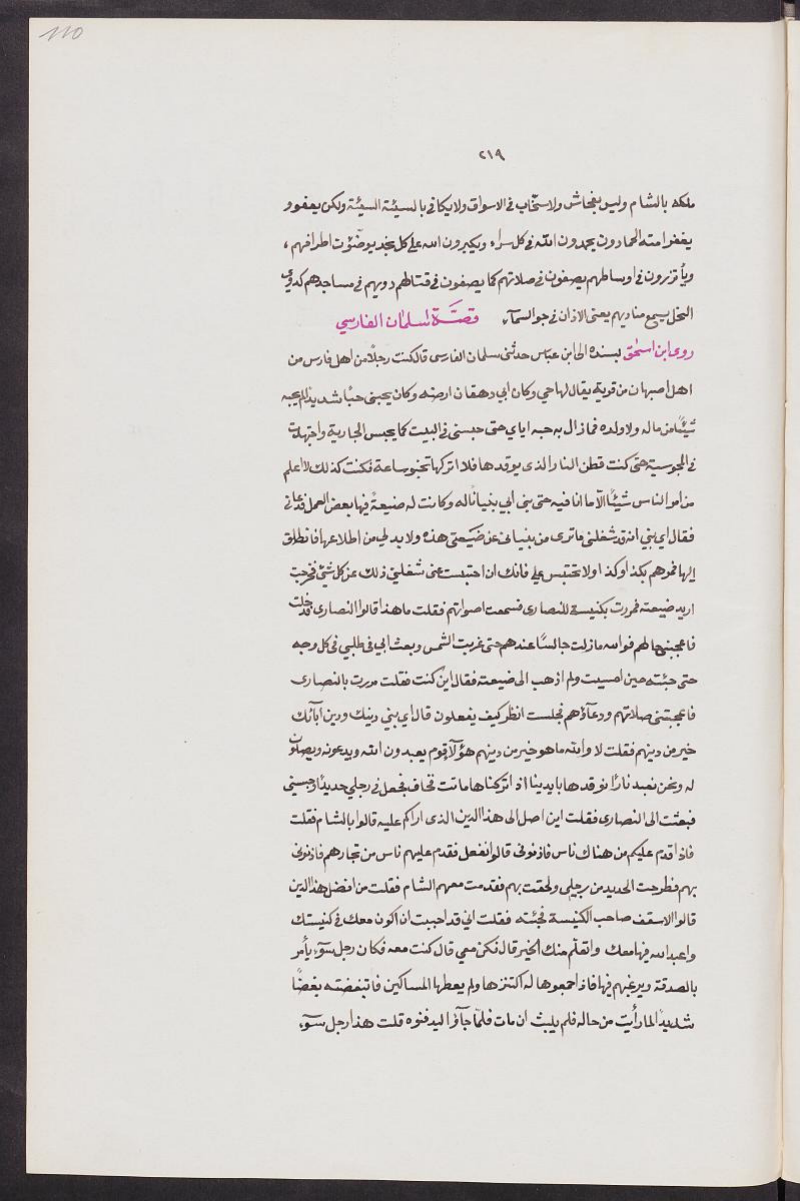 110
٢١٩
ملكه بالشام وليس بفحاش ولا سخاب فى الاسواق ولا يكافى بالسيئة السيئة ولكن يعفو و
يغفر امته الحمادون يحمدون الله فى كل سراء ويكبرون الله على كل نجد يوضئون اطرافهم ،
ويأتزرون فى اوساطهم يصفون فى صلاتهم كما يصفون فى قتالهم دويهم فى مساجدهم كدوى
النحل يسمع مناديهم يعنى الاذان فى جو السمآء قصّة سلمان الفارسي
روى ابن اسحق بسنده الى ابن عباس حدثنى سلمان الفارسى قال كنت رجلاً من اهل فارس من
اهل اصبهان من قرية يقال لها جي وكان ابي دهقان ارضه وكان يحبنى حبًا شديدًا لم يحبه
شيئًا من ماله ولا ولده فمازال به حبه اياي حتى حبسنى فى البيت كما يحبس الجارية واجتهدت
فى المجوسية حتى كنت قطن النار الذى يوقدها فلا اتركها تخبو ساعة فكنت كذلك لا اعلم
من امر الناس شيئًا الّا ما انا فيه حتى بنى ابي بنيانًا له وكانت له ضيعةٌ فيها بعض العمل فدعانى
فقال اي بني انه قد شغلنى ماترى من بنيانى عن ضيعتى هذه ولا بد لي من اطلاعها فانطلق
إليها فمرهم بكذا وكذا ولا تحتبس علي فانك ان احتبست عنى شغلتنى ذلك عن كل شئ فخرجت
اريد ضيعته فمررت بكنيسة للنصارى فسمعت اصواتهم فقلت ماهذا قالوا النصارى فدخلت
فاعجبنى حالهم فوالله مازلت جالسًا عندهم حتى غربت الشمس وبعث ابي فى طلبي فى كل وجه
حتى جئته حين امسيت ولم اذهب الى ضيعته فقال اين كنت فقلت مررت بالنصارى
فاعجبتنى صلاتهم ودعآؤهم فجلست انظر كيف يفعلون قال اي بني دينك ودين آبآئك
خير من دينهم فقلت لا والله ماهو خير من دينهم هؤلآ قوم يعبدون الله ويدعونه ويصلون
له ونحن نعبد نارًا نوقدها بايدينا اذا تركناها ماتت فخاف فجعل فى رجلي حديدًا وحبسنى
فبعثت الى النصارى فقلت اين اصل الى هذا الدين الذى اراكم عليه قالوا بالشام فقلت
فاذا قدم عليكم من هناك ناس فاذنونى قالوا نفعل فقدم عليهم ناس من تجارهم فاذنونى
بهم فطرحت الحديد من رجلي ولحقت بهم فقدمت معهم الشام فقلت من افضل هذا الدين
قالوا الاسقف صاحب الكنيسة فجئته فقلت اني قد احببت ان اكون معك فى كنيستك
واعبد الله فيها معك واتعلّم منك الخير قال فكن معي قال كنت معه فكان رجل سَوءٍ يأمر
بالصدقة ويرغبهم فيها فاذا جمعوها له اكتنزها ولم يعطها المساكين فابغضته بغضًا
شديدًا لما رأيت من حاله فلم يلبث ان مات فلمّا جآؤ اليدفنوه قلت هذا رجل سَوءٍ